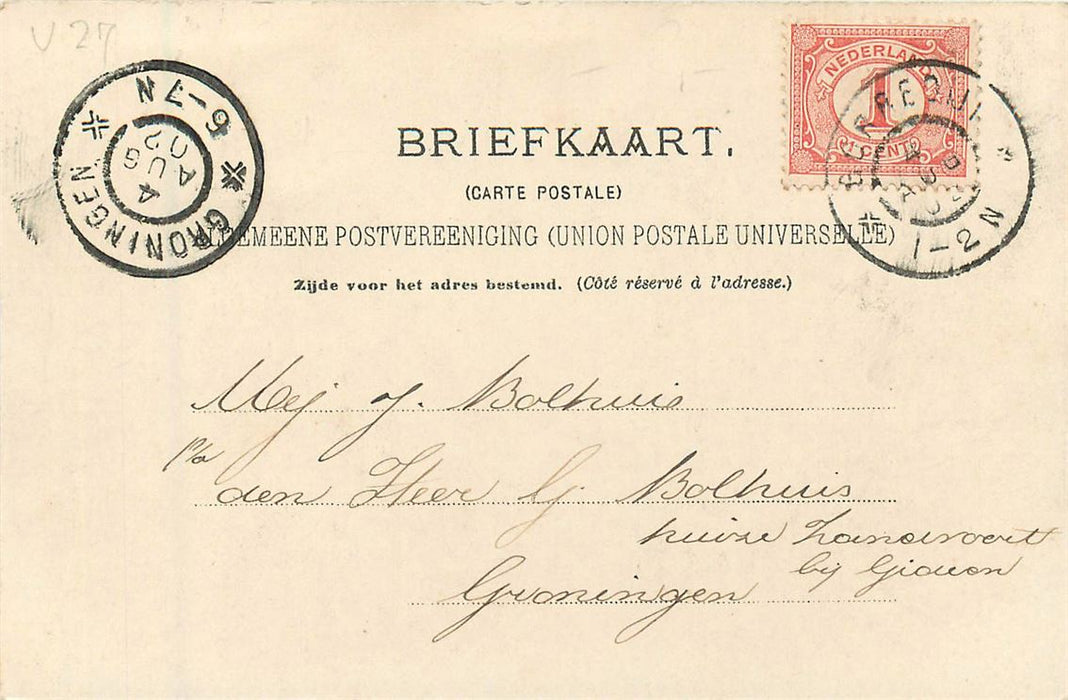 U 27
NEDERLAND
1
CENT
GRONINGEN
6-7N
4
AUG
02
4
AUG
02
1-2N
BRIEFKAART.
(CARTE POSTALE)
ALGEMEENE POSTVEREENIGING (UNION POSTALE UNIVERSELLE)
Zijde voor het adres bestemd. (Côté réservé à l'adresse.)
Mej J. Bolhuis
p/a
den Heer G. Bolhuis
huize Zandvoort
bij Gideon
Groningen